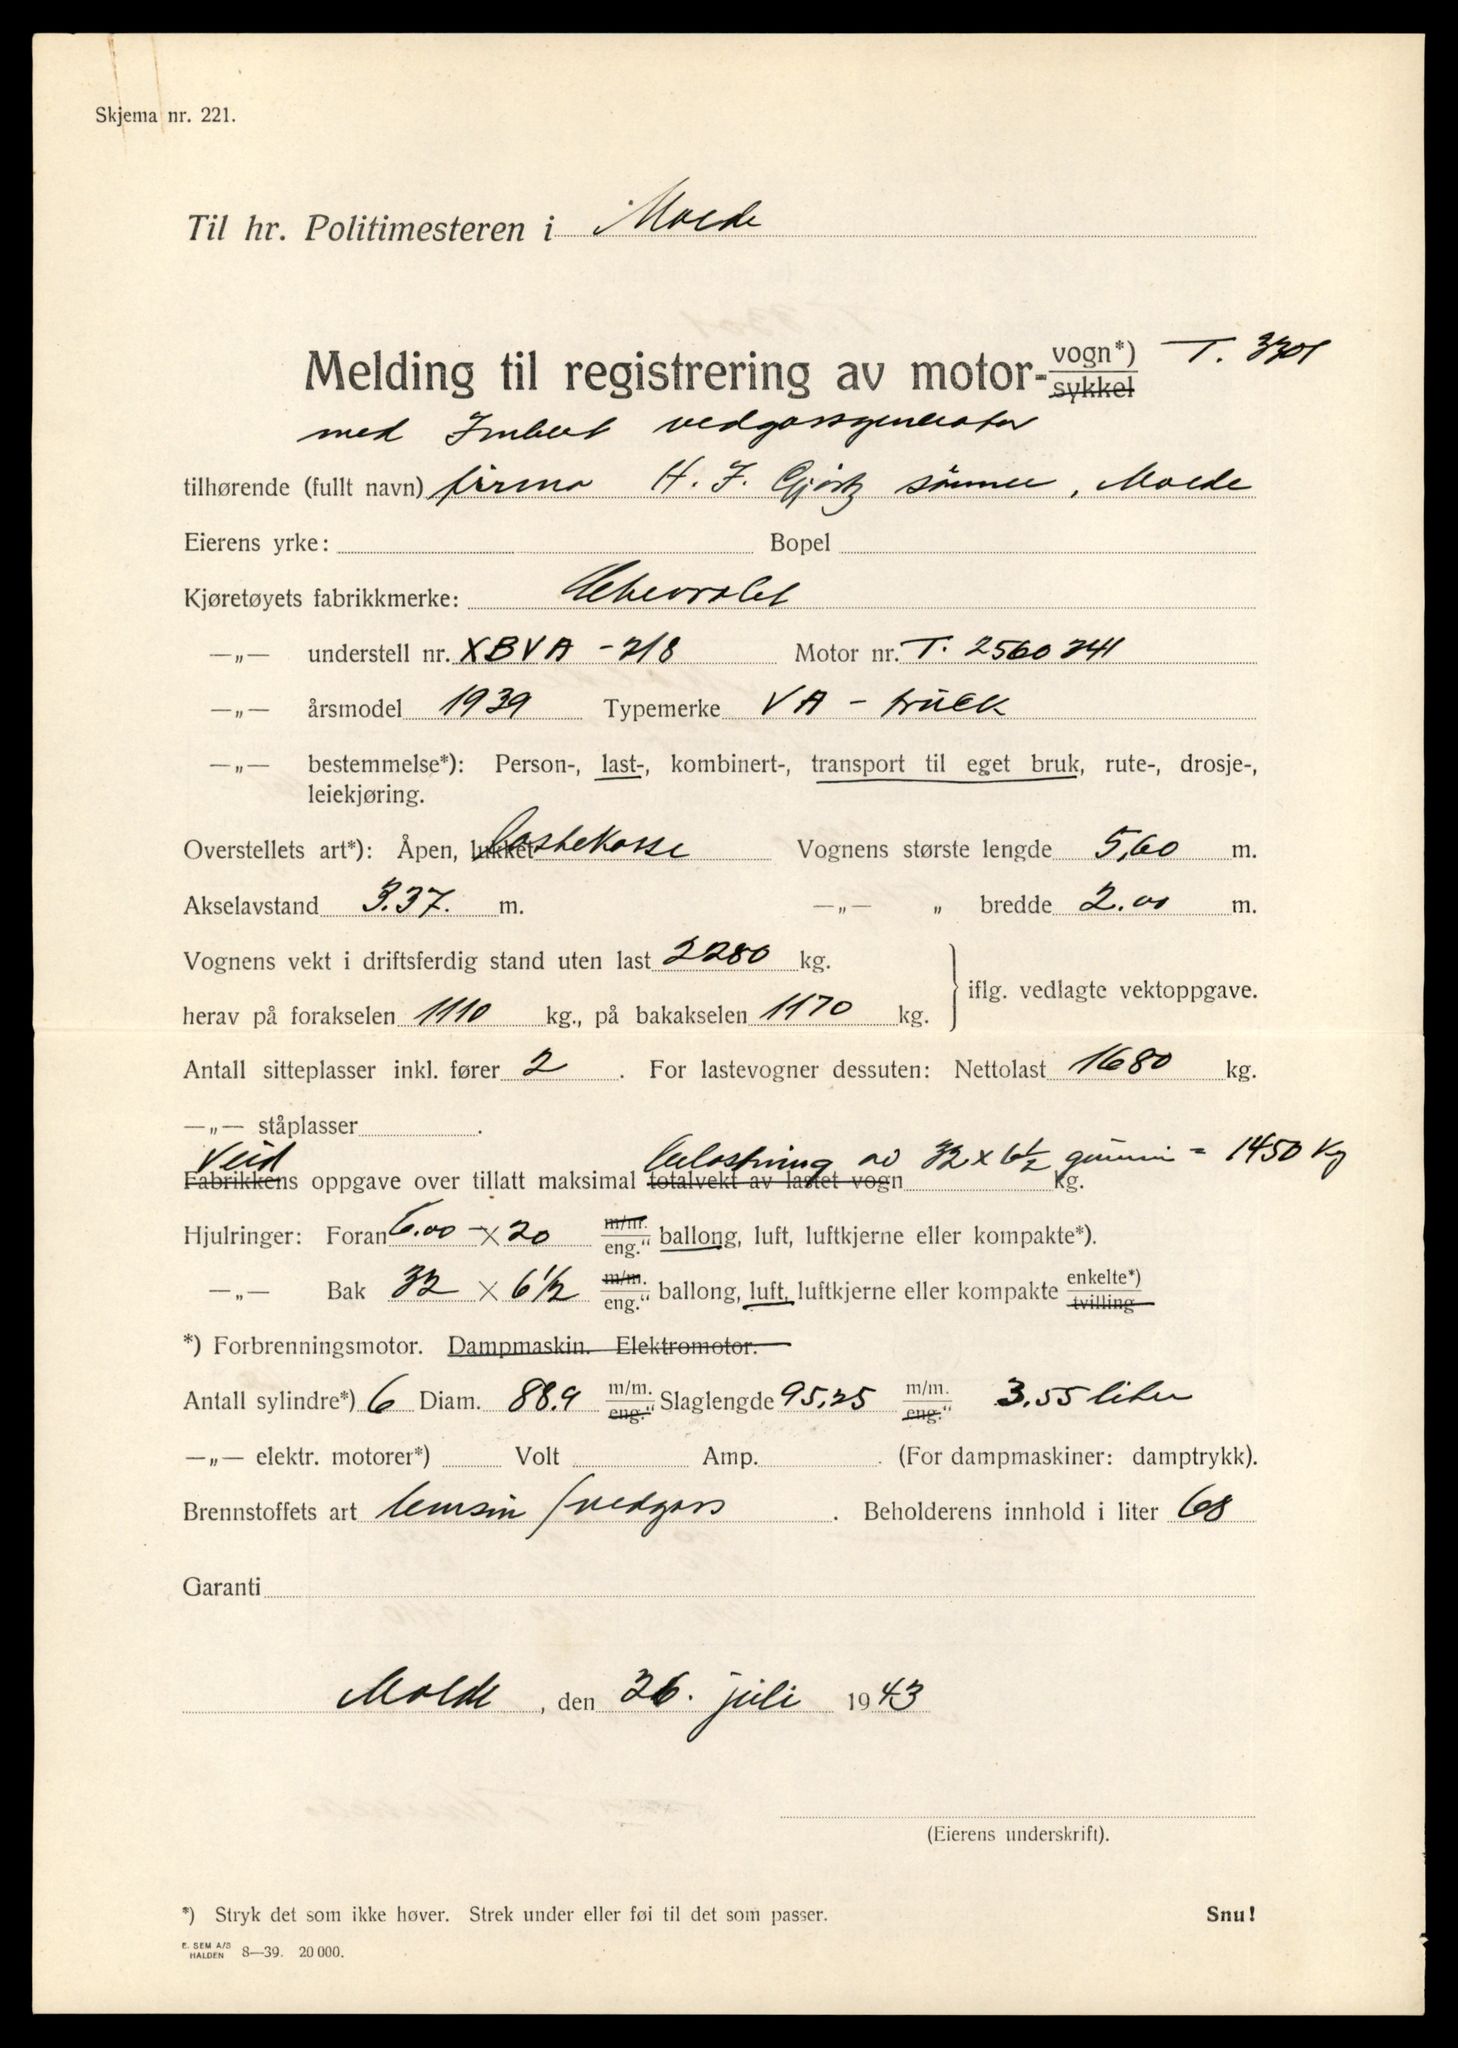 Skjema nr. 221.
Til hr. Politimesteren i Molde
Melding til registrering av motor-vogn*) sykkel T. 3701
med Imbert vedgassgenerator
tilhørende (fullt navn) firma H. J. Gjørtz sønner, Molde
Eierens yrke: Bopel
Kjøretøyets fabrikkmerke: Chevrolet
—„— understell nr. XBVA - 218 Motor nr. T. 2560241
—„— årsmodel 1939 Typemerke VA - truck
—„— bestemmelse*): Person-, last-, kombinert-, transport til eget bruk, rute-, drosje-,
leiekjøring.
Overstellets art*): Åpen, lukket Lastekasse Vognens største lengde 5,60 m.
Akselavstand 3.37. m. —„— „ bredde 2.00 m.
Vognens vekt i driftsferdig stand uten last 2280 kg.
herav på forakselen 1110 kg., på bakakselen 1170 kg. iflg. vedlagte vektoppgave.
Antall sitteplasser inkl. fører 2 . For lastevogner dessuten: Nettolast 1680 kg.
—„— ståplasser .
Veid belastning av 32 x 6½ gummi = 1450 Kg
Fabrikkens oppgave over tillatt maksimal totalvekt av lastet vogn kg.
Hjulringer: Foran 6.00 - × 20 m/m. eng." ballong, luft, luftkjerne eller kompakte*).
—„— Bak 32 × 6½ m/m. eng." ballong, luft, luftkjerne eller kompakte enkelte*) tvilling
*) Forbrenningsmotor. Dampmaskin. Elektromotor.
Antall sylindre*) 6 Diam. 88.9 m/m. eng." Slaglengde 95,25 m/m. eng." 3.55 liter
—„— elektr. motorer*) Volt Amp. . (For dampmaskiner: damptrykk).
Brennstoffets art bensin / vedgass . Beholderens innhold i liter 68
Garanti
Molde , den 26. juli 1943
(Eierens underskrift).
*) Stryk det som ikke høver. Strek under eller føi til det som passer. Snu!
E. SEM A/S HALDEN 8—39. 20 000.